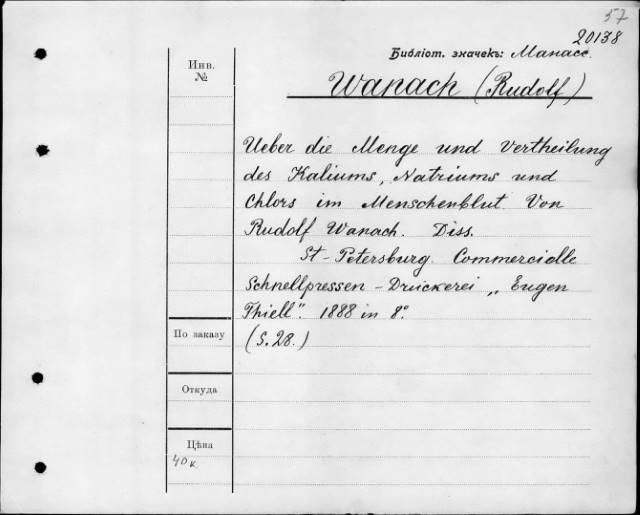 57
20138
Библіот. значекъ: Манасс.
Инв.
№
Wanach (Rudolf)
Ueber die Menge und Vertheilung
des Kaliums, Natriums und
Chlors im Menschenblut. Von
Rudolf Wanach. Diss.
St-Petersburg. Commercielle
Schnellpressen-Druckerei „Eugen
Thiell". 1888 in 8°.
По заказу
(S. 28.)
Откуда
Цѣна
40 к